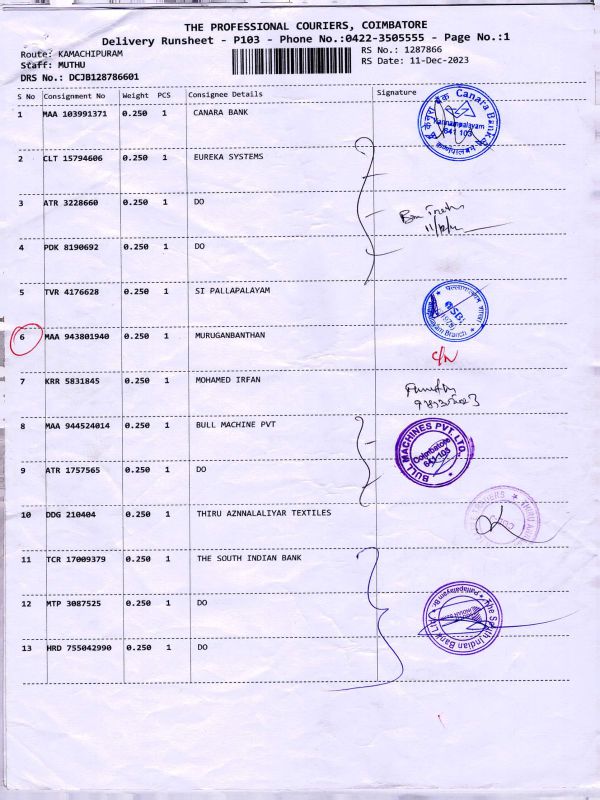 THE PROFESSIONAL COURIERS, COIMBATORE
Delivery Runsheet - P103 - Phone No.:0422-3505555 - Page No.:1
Route: KAMACHIPURAM
RS No.: 1287866
Staff: MUTHU
RS Date: 11-Dec-2023
DRS No.: DCJB128786601
S No Consignment No Weight PCS Consignee Details Signature
1 MAA 103991371 0.250 1 CANARA BANK
Canara Bank
641 103
2 CLT 15794606 0.250 1 EUREKA SYSTEMS
3 ATR 3228660 0.250 1 DO
4 PDK 8190692 0.250 1 DO
5 TVR 4176628 0.250 1 SI PALLAPALAYAM
SBI
Branch
6 MAA 943801940 0.250 1 MURUGANBANTHAN
7 KRR 5831845 0.250 1 MOHAMED IRFAN
8 MAA 944524014 0.250 1 BULL MACHINE PVT
BULL MACHINES PVT. LTD.
Coimbatore
641 103
9 ATR 1757565 0.250 1 DO
10 DDG 210404 0.250 1 THIRU AZNNALALIYAR TEXTILES
11 TCR 17009379 0.250 1 THE SOUTH INDIAN BANK
12 MTP 3087525 0.250 1 DO
The South Indian Bank
13 HRD 755042990 0.250 1 DO